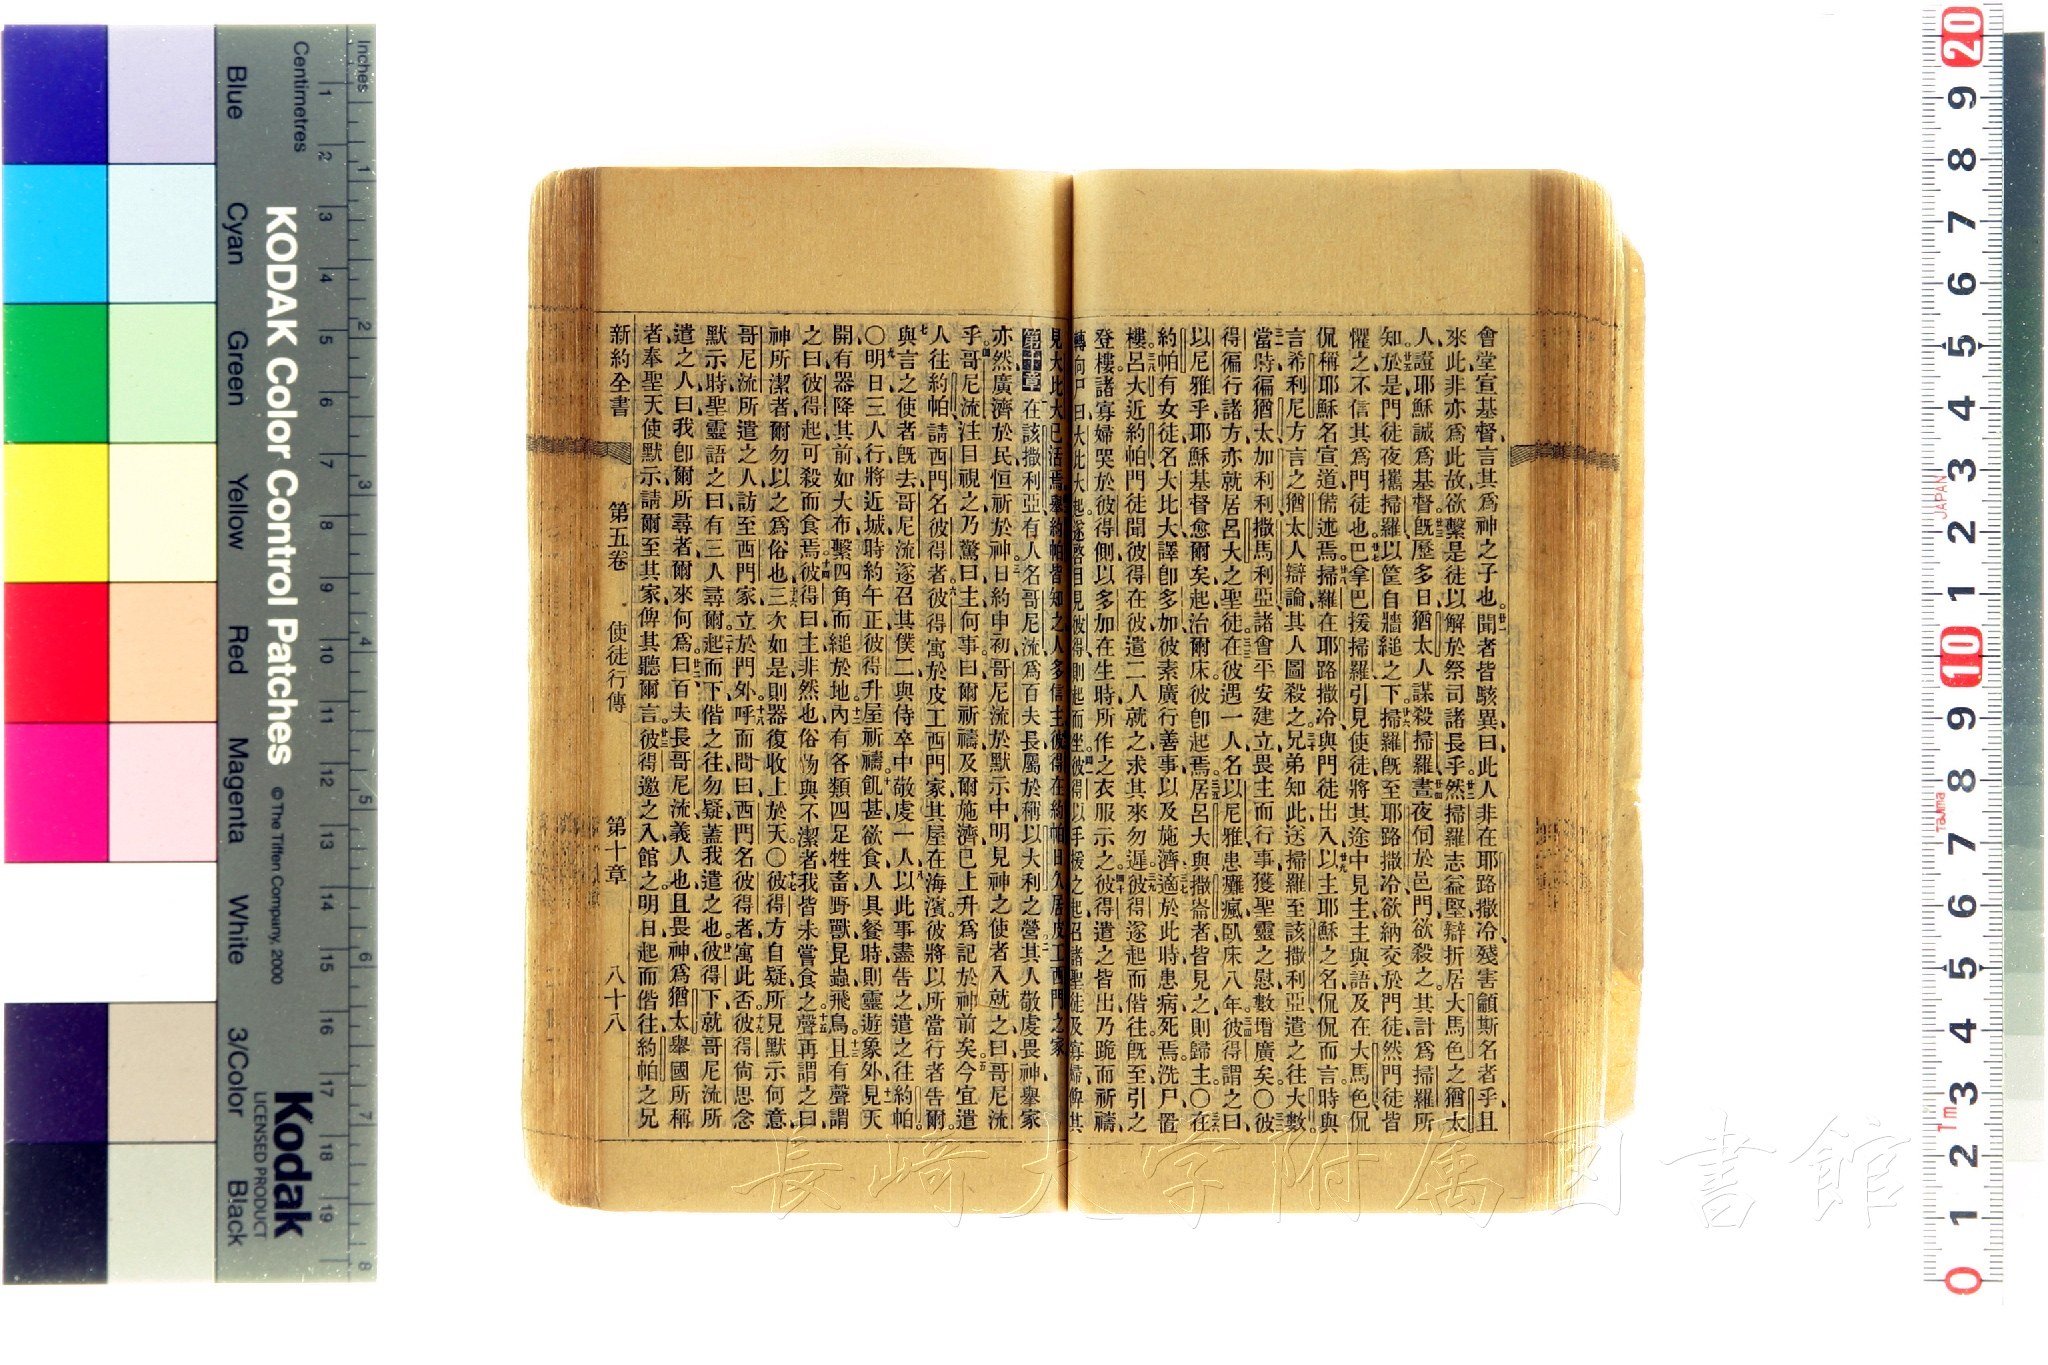 會堂宣基督言其爲神之子也聞者皆駭異曰此人非在耶路撒冷殘害籲斯名者乎且
來此非亦爲此故欲繫是徒以解於祭司諸長乎然掃羅志益堅辯折居大馬色之猶太
人證耶穌誠爲基督旣歷多日猶太人謀殺掃羅晝夜伺於邑門欲殺之其計爲掃羅所
知於是門徒夜攜掃羅以筐自牆縋之下掃羅旣至耶路撒冷欲納交於門徒然門徒皆
懼之不信其爲門徒也巴拿巴援掃羅引見使徒將其途中見主主與語及在大馬色侃
侃稱耶穌名宣道備述焉掃羅在耶路撒冷與門徒出入以主耶穌之名侃侃而言時與
言希利尼方言之猶太人辯論其人圖殺之兄弟知此送掃羅至該撒利亞遣之往大數
當時徧猶太加利利撒馬利亞諸會平安建立畏主而行事獲聖靈之慰數增廣矣〇彼
得徧行諸方亦就居呂大之聖徒在彼遇一人名以尼雅患癱瘋臥床八年彼得謂之曰
以尼雅乎耶穌基督愈爾矣起治爾床彼卽起焉居呂大與撒崙者皆見之則歸主〇在
約帕有女徒名大比大譯卽多加彼素廣行善事以及施濟適於此時患病死焉洗尸置
樓呂大近約帕門徒聞彼得在彼遣二人就之求其來勿遲彼得遂起而偕往旣至引之
登樓諸寡婦哭於彼得側以多加在生時所作之衣服示之彼得遣之皆出乃跪而祈禱
轉向尸曰大比大起遂啓目見彼得則起而坐彼得以手援之起召諸聖徒及寡婦俾其
見大比大已活焉舉約帕皆知之人多信主彼得在約帕日久居皮工西門之家
第十章 在該撒利亞有人名哥尼流爲百夫長屬於稱以大利之營其人敬虔畏神舉家
亦然廣濟於民恒祈於神日約申初哥尼流於默示中明見神之使者入就之曰哥尼流
乎哥尼流注目視之乃驚曰主何事曰爾祈禱及爾施濟已上升爲記於神前矣今宜遣
人往約帕請西門名彼得者彼得寓於皮工西門家其屋在海濱彼將以所當行者告爾
與言之使者旣去哥尼流遂召其僕二與侍卒中敬虔一人以此事盡告之遣之往約帕
〇明日三人行將近城時約午正彼得升屋祈禱飢甚欲食人具餐時則靈遊象外見天
開有器降其前如大布繫四角而縋於地內有各類四足牲畜野獸昆蟲飛鳥且有聲謂
之曰彼得起可殺而食焉彼得曰主非然也俗物與不潔者我皆未嘗食之聲再謂之曰
神所潔者爾勿以之爲俗也三次如是則器復收上於天〇彼得方自疑所見默示何意
哥尼流所遣之人訪至西門家立於門外呼而問曰西門名彼得者寓此否彼得尙思念
默示時聖靈語之曰有三人尋爾起而下偕之往勿疑蓋我遣之也彼得下就哥尼流所
遣之人曰我卽爾所尋者爾來何爲曰百夫長哥尼流義人也且畏神爲猶太舉國所稱
者奉聖天使默示請爾至其家俾其聽爾言彼得邀之入館之明日起而偕往約帕之兄
新約全書 第五卷 使徒行傳 第十章 八十八
Inches
Centimetres
KODAK Color Control Patches © The Tiffen Company, 2000
Kodak
LICENSED PRODUCT
Blue Cyan Green Yellow Red Magenta White 3/Color Black
1 2 3 4 5 6 7 8 9 10 11 12 13 14 15 16 17 18 19
1 2 3 4 5 6 7 8
20 9 8 7 6 5 4 3 2 1 10 9 8 7 6 5 4 3 2 1 0
JAPAN
Tajima
Tm
長崎大学附属図書館